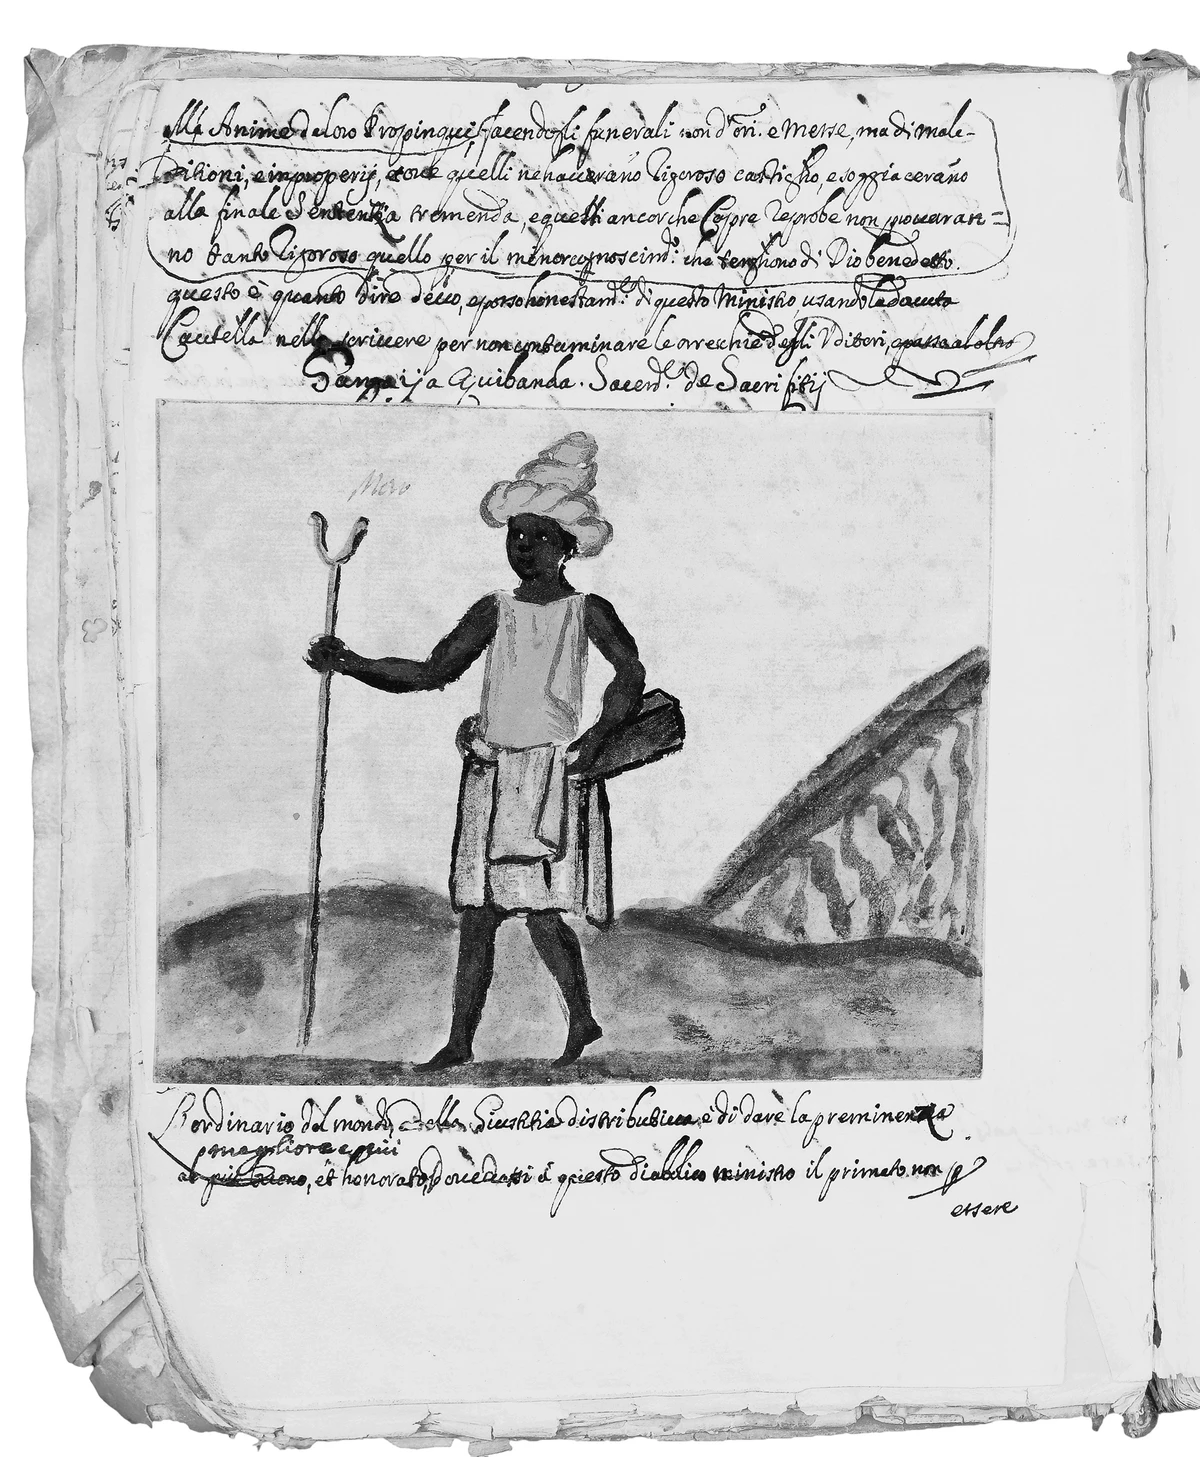 alle Anime de loro Propinqui, facendogli funerali non d'ori. e Messe, ma di male-
ditioni, e improperij, e quelli ne haveranno rigoroso castigho, e soggiaceranno
alla finale Sentenza tremenda, e questi ancorche sempre reprobe non proveran=
no tanto rigoroso quello per il minor cognoscim.º che tenghono di Dio benedetto.
questo è quanto dire devo, e posso honestam.te di questo Ministro, usando la dovuta
Cauttella nello scrivere per non contaminare le orrechie degli Uditori, e passo al altro
Ganga ija Quibanda. Sacerd.te de Sacrifitij
Moro
L'ordinario del mondo, e della Giustitia distributiva, è di dare la preminenza
megliore e più
al più buono, et honorato, dove dassi à questo diabolico ministro il primato. non p
essere